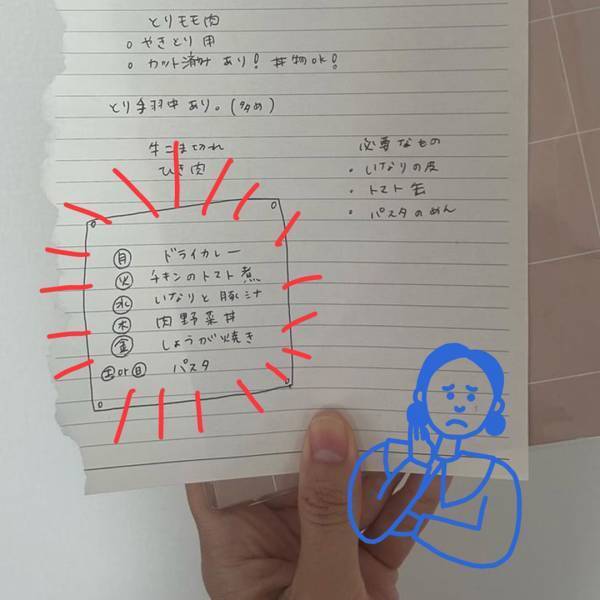 とりモモ肉
○ やきとり用
○ カット済み あり! 丼物ok!
とり手羽中あり。(多め)
牛こま切れ
ひき肉
必要なもの
・いなりの皮
・トマト缶
・パスタのめん
月 ドライカレー
火 チキンのトマト煮
水 いなりと豚汁
木 肉野菜丼
金 しょうが焼き
土or日 パスタ